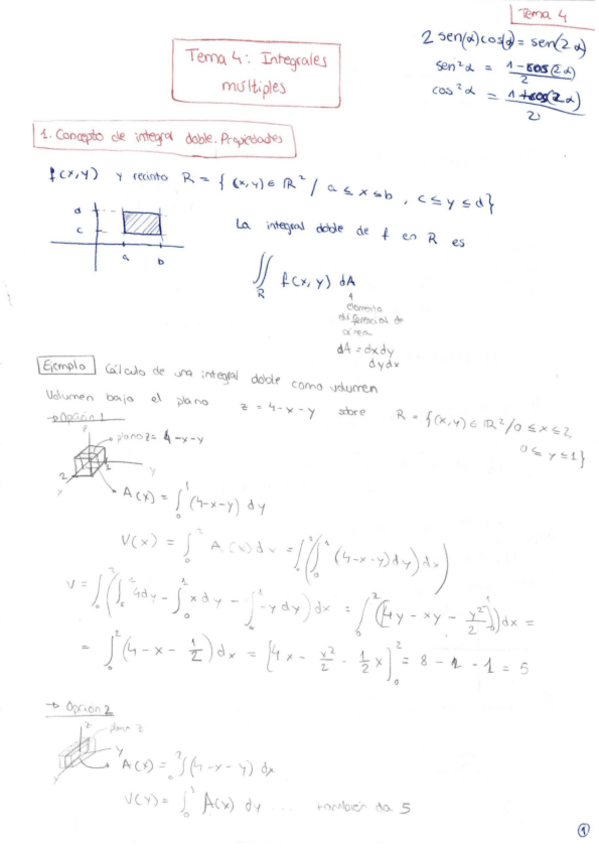 Tema 4
2 sen(α)cos(α) = sen(2α)
sen²α = (1-cos(2α))/2
cos²α = (1+cos(2α))/2
Tema 4: Integrales
múltiples
1. Concepto de integral doble. Propiedades
f(x,y) y recinto R = {(x,y) ∈ ℝ² / a ≤ x ≤ b, c ≤ y ≤ d}
d
c
a b
La integral doble de f en R es
∬_R f(x,y) dA
elemento
diferencial de
área
dA = dxdy
dydx
Ejemplo Cálculo de una integral doble como volumen
Volumen bajo el plano z = 4-x-y sobre R = {(x,y) ∈ ℝ² / 0 ≤ x ≤ 2,
0 ≤ y ≤ 1}
→ Opción 1
z
plano z = 4-x-y
2
y
A(x) = ∫₀¹ (4-x-y) dy
V(x) = ∫₀² A(x) dx = ∫₀² (∫₀¹ (4-x-y) dy) dx)
V = ∫₀² (∫₀¹ 4dy - ∫₀¹ x dy - ∫₀¹ -y dy) dx = ∫₀² ([4y - xy - y²/2]₀¹) dx =
= ∫₀² (4 - x - 1/2) dx = [4x - x²/2 - 1/2 x]₀² = 8 - 2 - 1 = 5
→ Opción 2
z
plano z
y
A(x) = ₀²∫(4-x-y) dx
V(Y) = ∫₀¹ A(x) dy .... también da 5
1